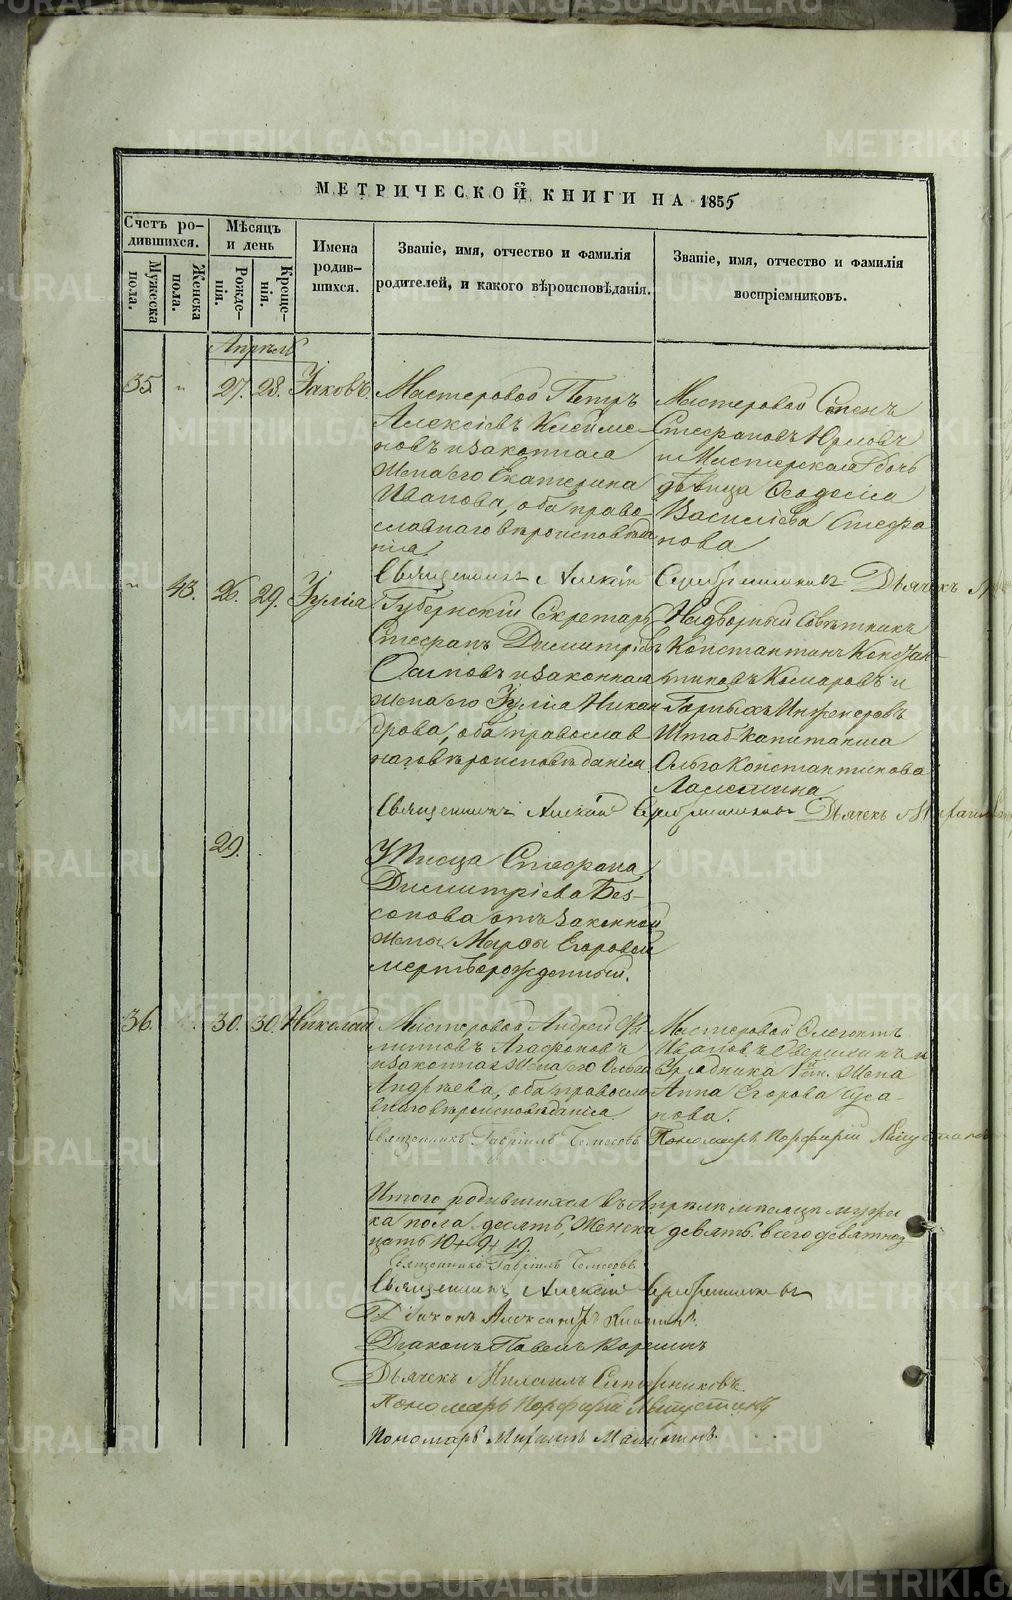 МЕТРИЧЕСКОЙ КНИГИ НА 1855
Счетъ ро-
дившихся.
Мужеска
пола.
Женска
пола.
Мѣсяцъ
и день
Рожде-
нія.
Креще-
нія.
Имена
родив-
шихся.
Званіе, имя, отчество и фамилія
родителей, и какого вѣроисповѣданія.
Званіе, имя, отчество и фамилія
воспріемниковъ.
Апрѣль
35. " 27. 28. Іаковъ.
Мастеровой Петръ
Алексѣевъ Клейме-
новъ и законная
жена его Екатерина
Иванова, оба право-
славнаго вѣроисповѣда
нія.
Мастеровой Семенъ
Стефановъ Юрловъ
и Мастерская дочь
дѣвица Ѳеодосія
Василіева Стефа
нова
Священникъ Алексій Серебренниковъ Дьячекъ
" 43. 26. 29. Іулія
Губернскій Секретарь
Стефанъ Димитріевъ
Осиповъ и законная
жена его Іулія Никан
дрова, оба православ
наго вѣроисповѣданія.
Надворный Совѣтникъ
Константинъ Констан-
тиновъ Комаровъ и
Горныхъ Инженеровъ
Штабъ Капитанша
Ольга Константинова
Священникъ Алексій Серебренниковъ Дьячекъ
29.
У Писца Стефана
Димитріева Без-
сонова отъ законной
жены Марѳы Егоровой
мертворожденный.
36. 30. 30. Николай
Мастеровой Андрей Фи
липповъ Агафоновъ
и законная жена его Ольга
Андрѣева, оба правосла
внаго вѣроисповѣданія
Мастеровой
Ивановъ
Урядника 1й ст. жена
Анна Егорова Суса-
нова.
Священникъ Гавріилъ Пономарь Порфирій
Итого родившихся въ Апрѣлѣ мѣсяцѣ муже
ска пола десять, Женска девять всего девятнад
цать 10+9+19.
Священникъ Гавріилъ
Священникъ Алексій Серебренниковъ
Діаконъ Александръ
Діаконъ Павелъ
Дьячекъ Михаилъ
Пономарь Порфирій
Пономарь Михаилъ
METRIKI.GASO-URAL.RU